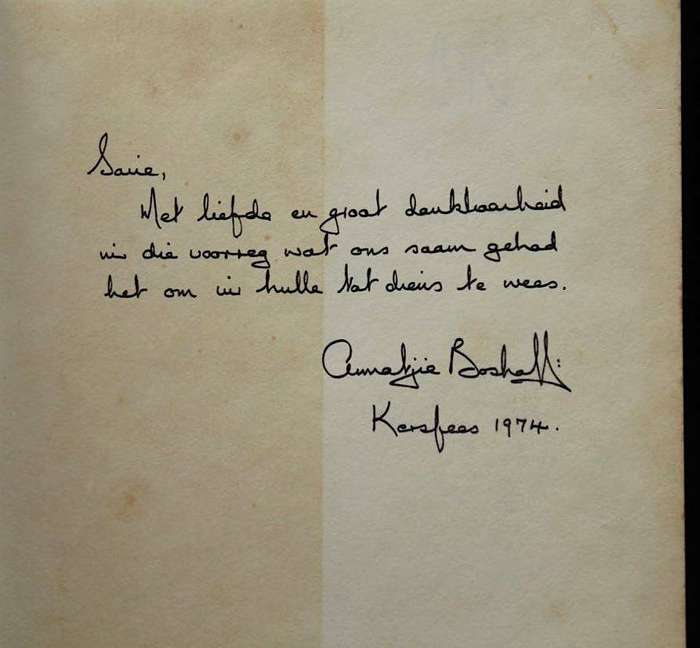 Sarie,
Met liefde en groot dankbaarheid
vir die voorreg wat ons saam gehad
het om vir hulle tot diens te wees.
Annatjie Boshoff:
Kersfees 1974.